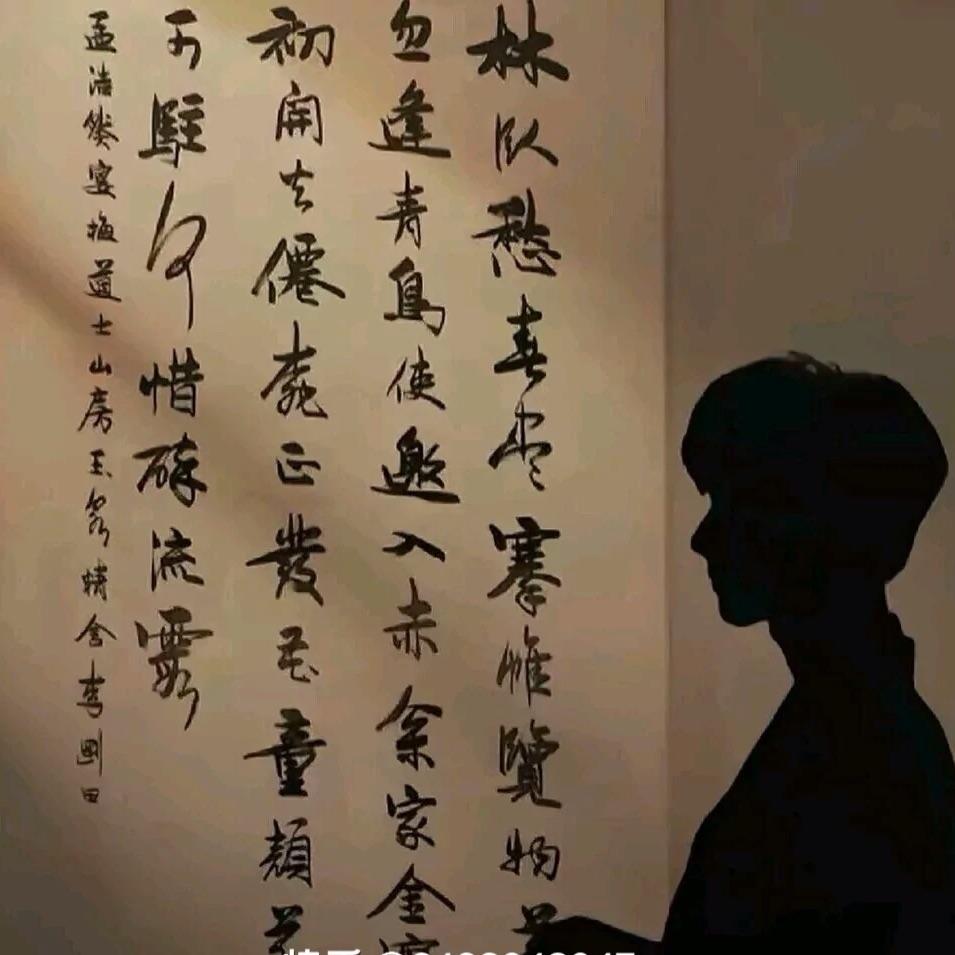 林臥愁春尽搴帷覽物華
忽逢青鳥使邀入赤枀家金
初開火僊桃正發花童顏若
可駐何惜醉流霞
孟浩然宴梅道士山房玉泉精舍李剛田